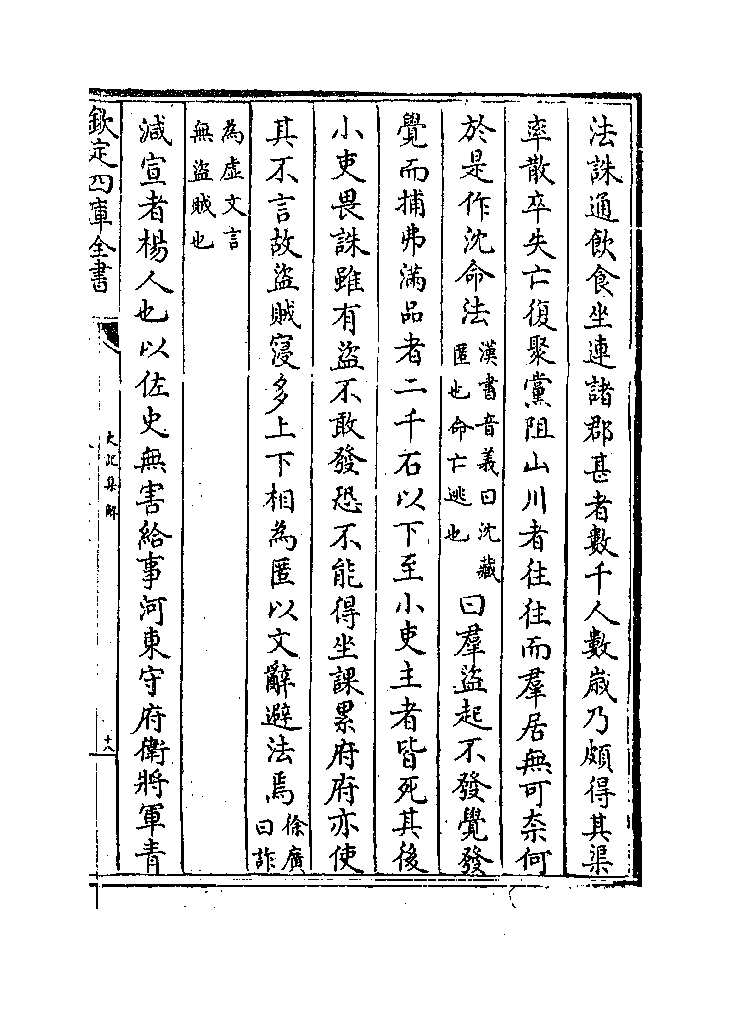 法誅通飲食坐連諸郡甚者數千人數歳乃頗得其渠
率散卒失亡復聚黨阻山川者往往而羣居無可奈何
於是作沈命法漢書音義曰沈藏匿也命亡逃也曰羣盜起不發覺發
覺而捕弗滿品者二千石以下至小吏主者皆死其後
小吏畏誅雖有盜不敢發恐不能得坐課累府府亦使
其不言故盜賊寖多上下相為匿以文辭避法焉徐廣曰詐
為虛文言無盜賊也
減宣者楊人也以佐史無害給事河東守府衛將軍青
欽定四庫全書
史記集解
十八